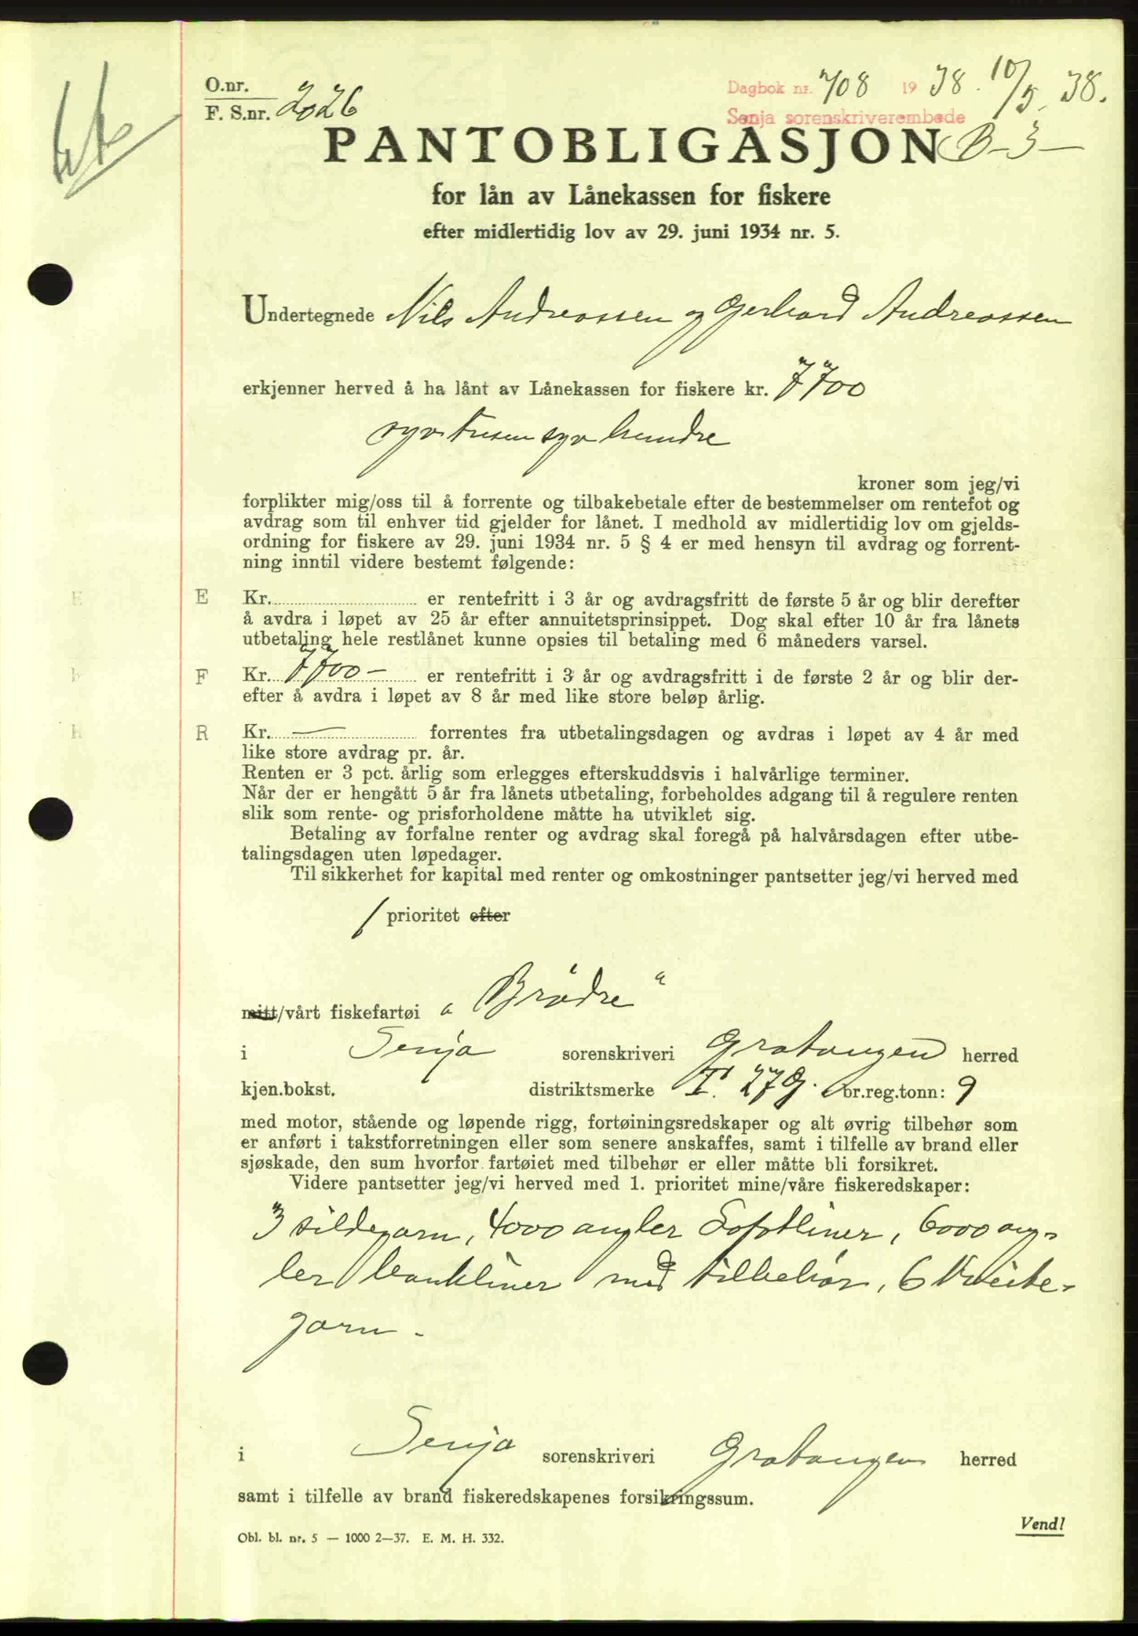 O.nr.
F. S.nr. 2026
Dagbok nr. 708 1938. 10/5. 38.
Senja sorenskriverembede
PANTOBLIGASJON B-3-
for lån av Lånekassen for fiskere
efter midlertidig lov av 29. juni 1934 nr. 5.
Undertegnede Nils Andreassen og Gerhard Andreassen
erkjenner herved å ha lånt av Lånekassen for fiskere kr. 7700
syv tusen syv hundre
kroner som jeg/vi
forplikter mig/oss til å forrente og tilbakebetale efter de bestemmelser om rentefot og
avdrag som til enhver tid gjelder for lånet. I medhold av midlertidig lov om gjelds-
ordning for fiskere av 29. juni 1934 nr. 5 § 4 er med hensyn til avdrag og forrent-
ning inntil videre bestemt følgende:
E Kr. er rentefritt i 3 år og avdragsfritt de første 5 år og blir derefter
å avdra i løpet av 25 år efter annuitetsprinsippet. Dog skal efter 10 år fra lånets
utbetaling hele restlånet kunne opsies til betaling med 6 måneders varsel.
F Kr. 7700- er rentefritt i 3 år og avdragsfritt i de første 2 år og blir der-
efter å avdra i løpet av 8 år med like store beløp årlig.
R Kr. — forrentes fra utbetalingsdagen og avdras i løpet av 4 år med
like store avdrag pr. år.
Renten er 3 pct. årlig som erlegges efterskuddsvis i halvårlige terminer.
Når der er hengått 5 år fra lånets utbetaling, forbeholdes adgang til å regulere renten
slik som rente- og prisforholdene måtte ha utviklet sig.
Betaling av forfalne renter og avdrag skal foregå på halvårsdagen efter utbe-
talingsdagen uten løpedager.
Til sikkerhet for kapital med renter og omkostninger pantsetter jeg/vi herved med
1 prioritet efter
mitt/vårt fiskefartøi "Brödre"
i Senja sorenskriveri Gratangen herred
kjen.bokst. distriktsmerke T. 27 G. br.reg.tonn: 9
med motor, stående og løpende rigg, fortøiningsredskaper og alt øvrig tilbehør som
er anført i takstforretningen eller som senere anskaffes, samt i tilfelle av brand eller
sjøskade, den sum hvorfor fartøiet med tilbehør er eller måtte bli forsikret.
Videre pantsetter jeg/vi herved med 1. prioritet mine/våre fiskeredskaper:
3 sildegarn, 4000 angler Softliner, 6000 ang-
ler bankliner med tilbehör, 6 kveite-
garn.
i Senja sorenskriveri Gratangen herred
samt i tilfelle av brand fiskeredskapenes forsikringssum.
Vend!
Obl. bl. nr. 5 — 1000 2—37. E. M. H. 332.